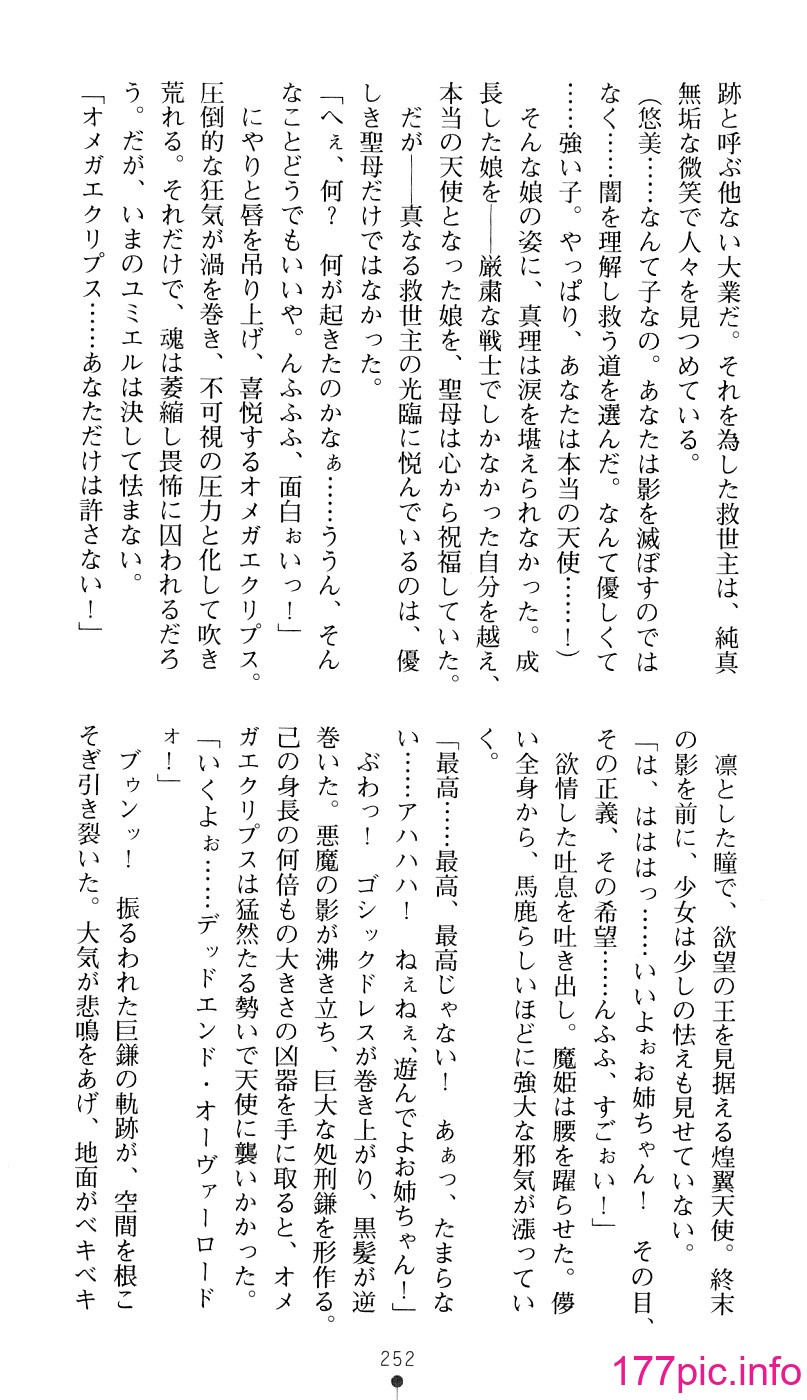 跡と呼ぶ他ない大業だ。それを為した救世主は、純真
無垢な微笑で人々を見つめている。
（悠美……なんて子なの。あなたは影を滅ぼすのでは
なく……闇を理解し救う道を選んだ。なんて優しくて
……強い子。やっぱり、あなたは本当の天使……！）
　そんな娘の姿に、真理は涙を堪えられなかった。成
長した娘を――厳粛な戦士でしかなかった自分を越え、
本当の天使となった娘を、聖母は心から祝福していた。
　だが――真なる救世主の光臨に悦んでいるのは、優
しき聖母だけではなかった。
「へぇ、何？　何が起きたのかなぁ……ううん、そん
なことどうでもいいや。んふふふ、面白ぉいっ！」
　にやりと唇を吊り上げ、喜悦するオメガエクリプス。
圧倒的な狂気が渦を巻き、不可視の圧力と化して吹き
荒れる。それだけで、魂は萎縮し畏怖に囚われるだろ
う。だが、いまのユミエルは決して怯まない。
「オメガエクリプス……あなただけは許さない！」
　凛とした瞳で、欲望の王を見据える煌翼天使。終末
の影を前に、少女は少しの怯えも見せていない。
「は、はははっ……いいよぉお姉ちゃん！　その目、
その正義、その希望……んふふ、すごぉい！」
　欲情した吐息を吐き出し。魔姫は腰を躍らせた。儚
い全身から、馬鹿らしいほどに強大な邪気が漲ってい
く。
「最高……最高、最高じゃない！　あぁっ、たまらな
い……アハハハ！　ねぇねぇ、遊んでよお姉ちゃん！」
　ぶわっ！　ゴシックドレスが巻き上がり、黒髪が逆
巻いた。悪魔の影が沸き立ち、巨大な処刑鎌を形作る。
己の身長の何倍もの大きさの凶器を手に取ると、オメ
ガエクリプスは猛然たる勢いで天使に襲いかかった。
「いくよぉ……デッドエンド・オーヴァーロード
ォ！」
　ブゥンッ！　振るわれた巨鎌の軌跡が、空間を根こ
そぎ引き裂いた。大気が悲鳴をあげ、地面がベキベキ
252
177pic.info